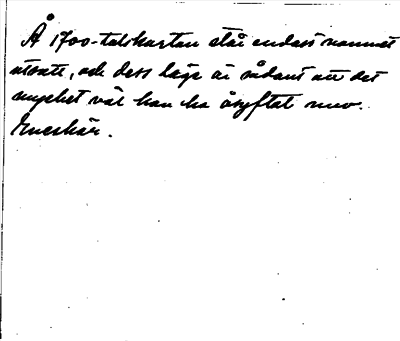 Å 1700-talskartan står endast namnet
utsatt, och dess läge är sådant att det
mycket väl kan ha åsyftat nuv.
Eneskär.